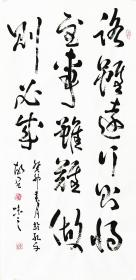 路雖遠行則將
至事雖難做
則必成
癸卯 月於